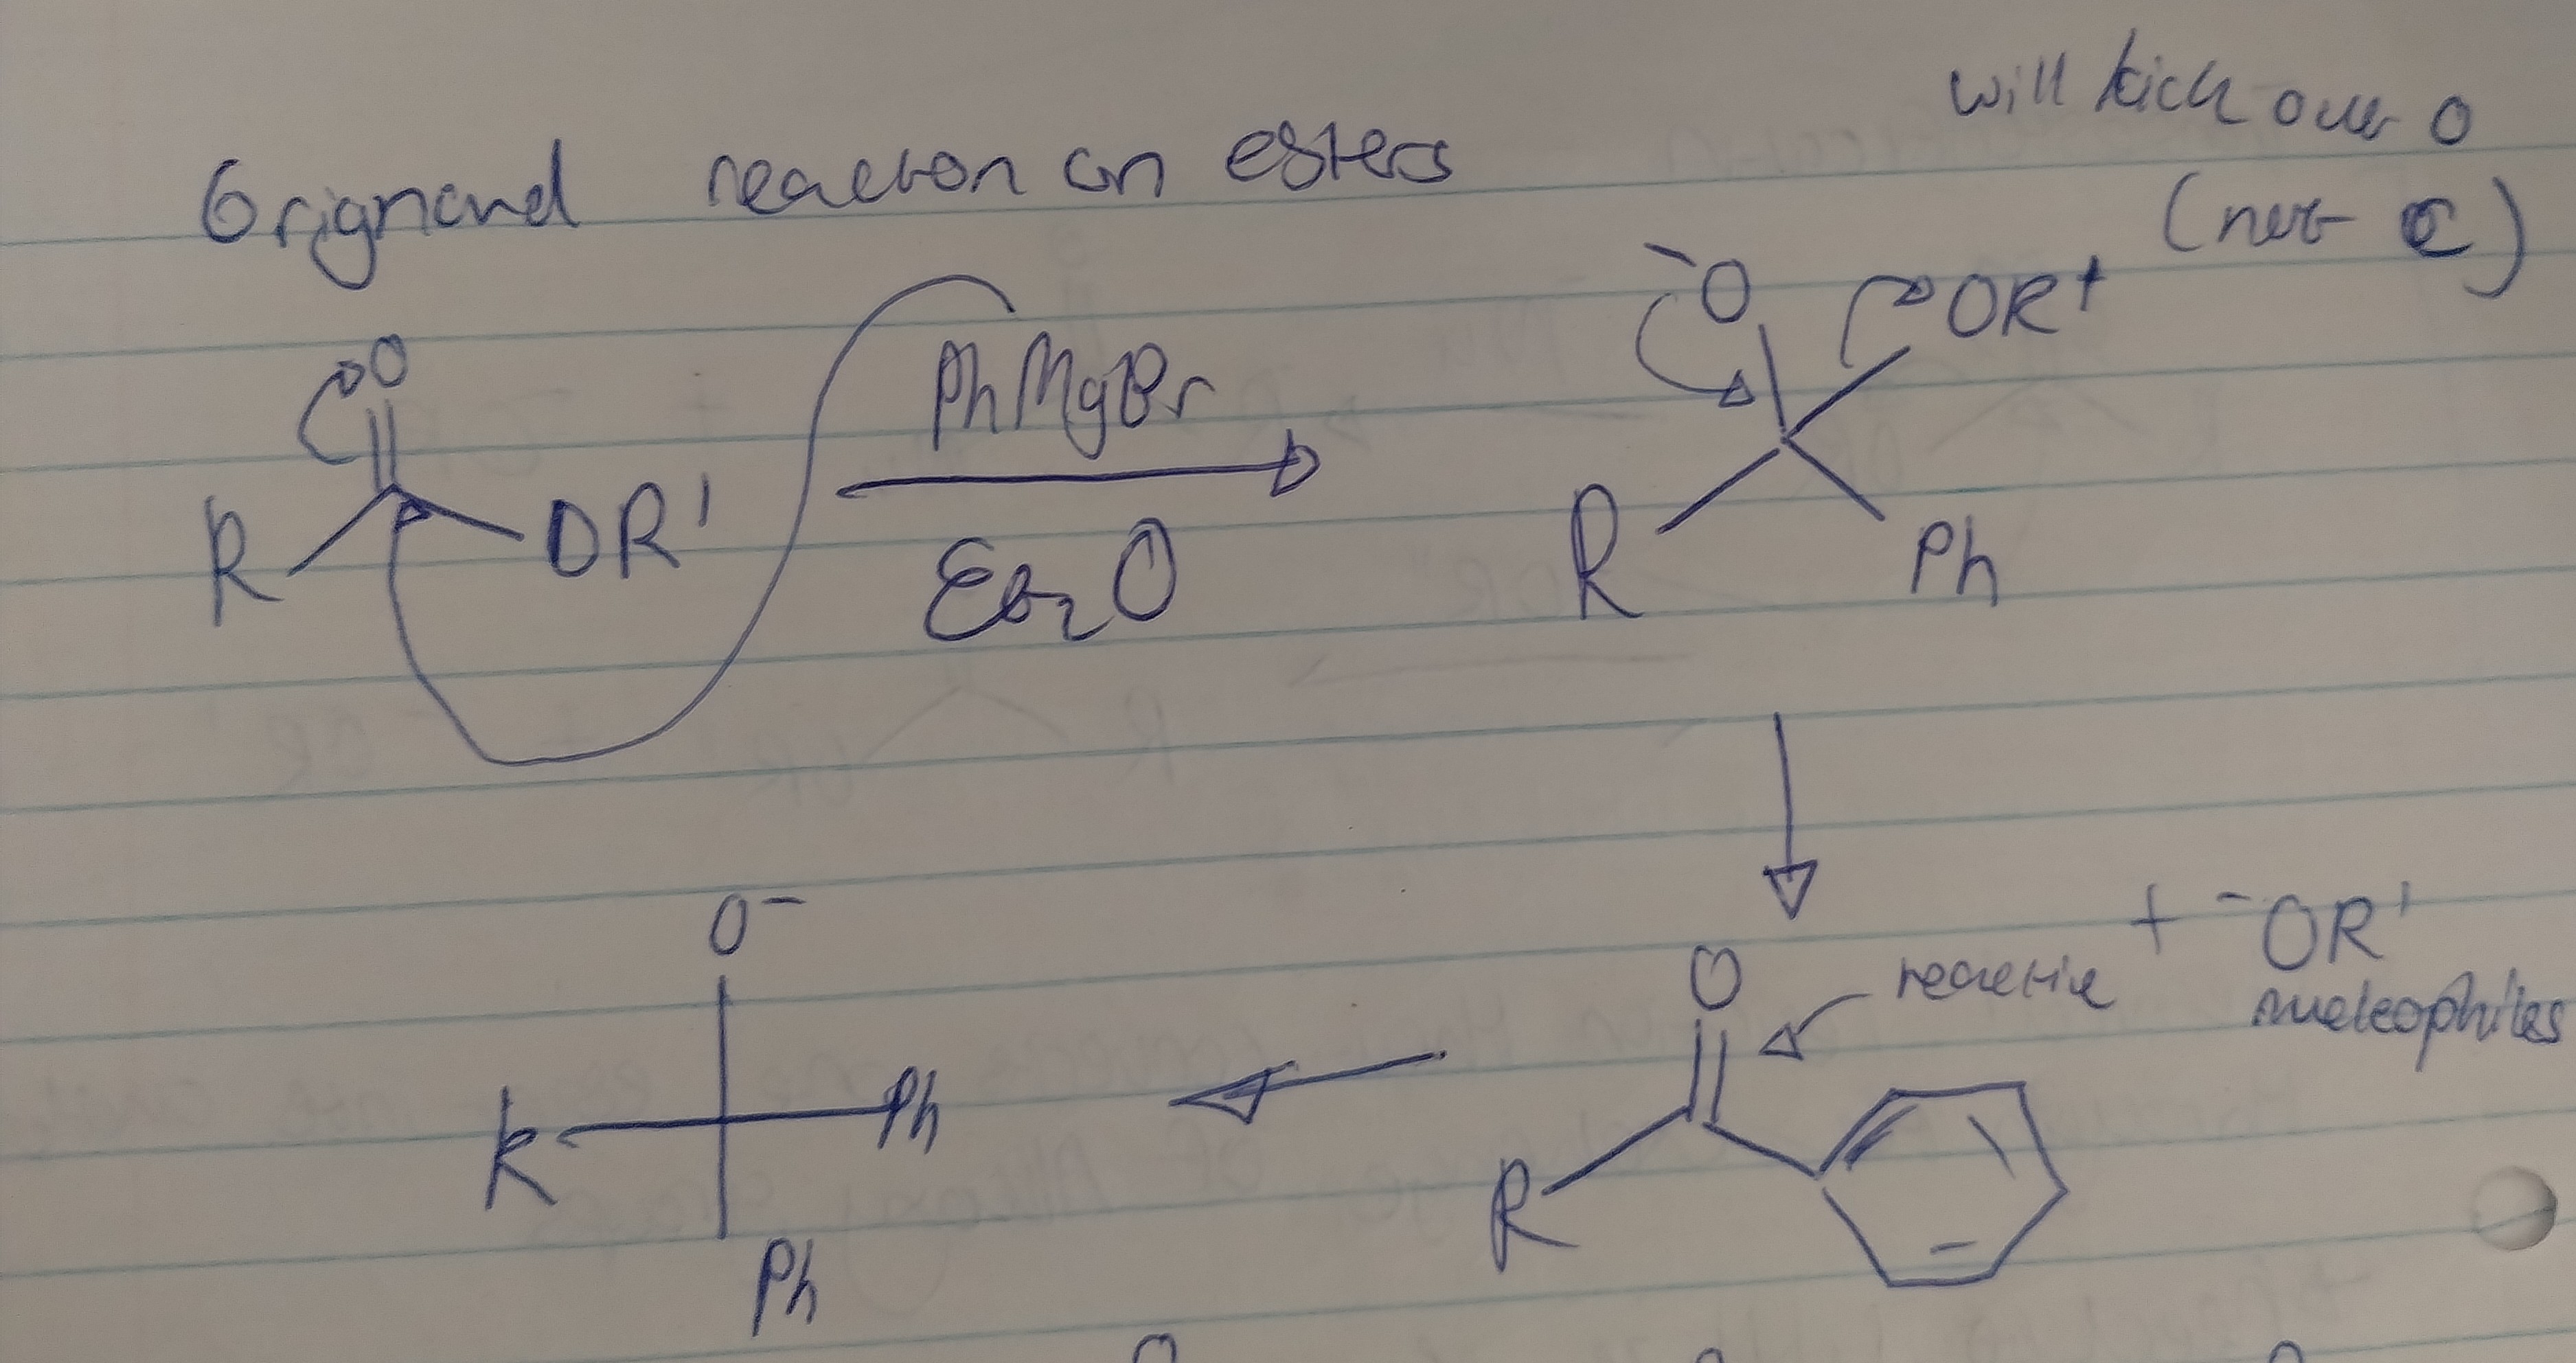 will kick over O
Grignard reaction on esters
(not C)
⁻O OR⁺
O
PhMgBr
R OR'
Et₂O
R Ph
O⁻
+ ⁻OR'
O reactive
nucleophiles
R Ph
R
Ph